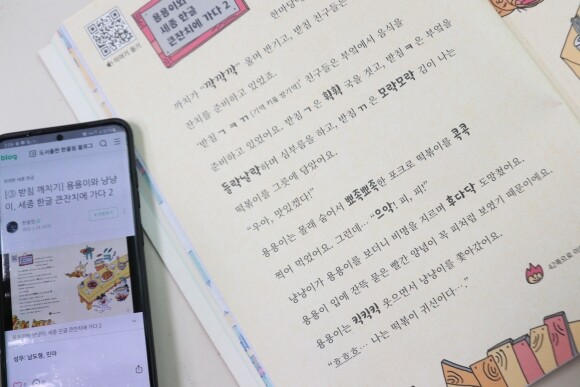 용용이와
세종 한글
큰잔치에 가다 2
한마당
까치가 "깍까깍" 울며 반기고, 받침 친구들은
잔치를 준비하고 있었죠.
'받침 ㄱ ㅋ ㄲ [기역 키읔 쌍기역]' 친구들은 부엌에서 음식을
준비하고 있었어요. 받침 ㄱ은 휙휙 국을 젓고, 받침 ㅋ은 부엌을
들락날락하며 심부름을 하고, 받침 ㄲ은 모락모락 김이 나는
떡볶이를 그릇에 담았어요.
"우아, 맛있겠다!"
용용이는 몰래 숨어서 뾰족뾰족한 포크로 떡볶이를 콕콕
찍어 먹었어요. 그런데… "으악! 피, 피!"
냥냥이가 용용이를 보더니 비명을 지르며 후다닥 도망쳤어요.
용용이 입에 잔뜩 묻은 빨간 양념이 꼭 피처럼 보였기 때문이에요.
용용이는 킥킥킥 웃으면서 냥냥이를 쫓아갔어요.
"흐흐흐… 나는 떡볶이 귀신이다…."
42쪽으로
blog
도서출판 한글림 블로그
[③ 받침 깨치기] 용용이와 냥냥
이, 세종 한글 큰잔치에 가다 2
용용이와 냥냥이, 세종 한글 큰잔치에 가다 2
성우: 남도형, 민아